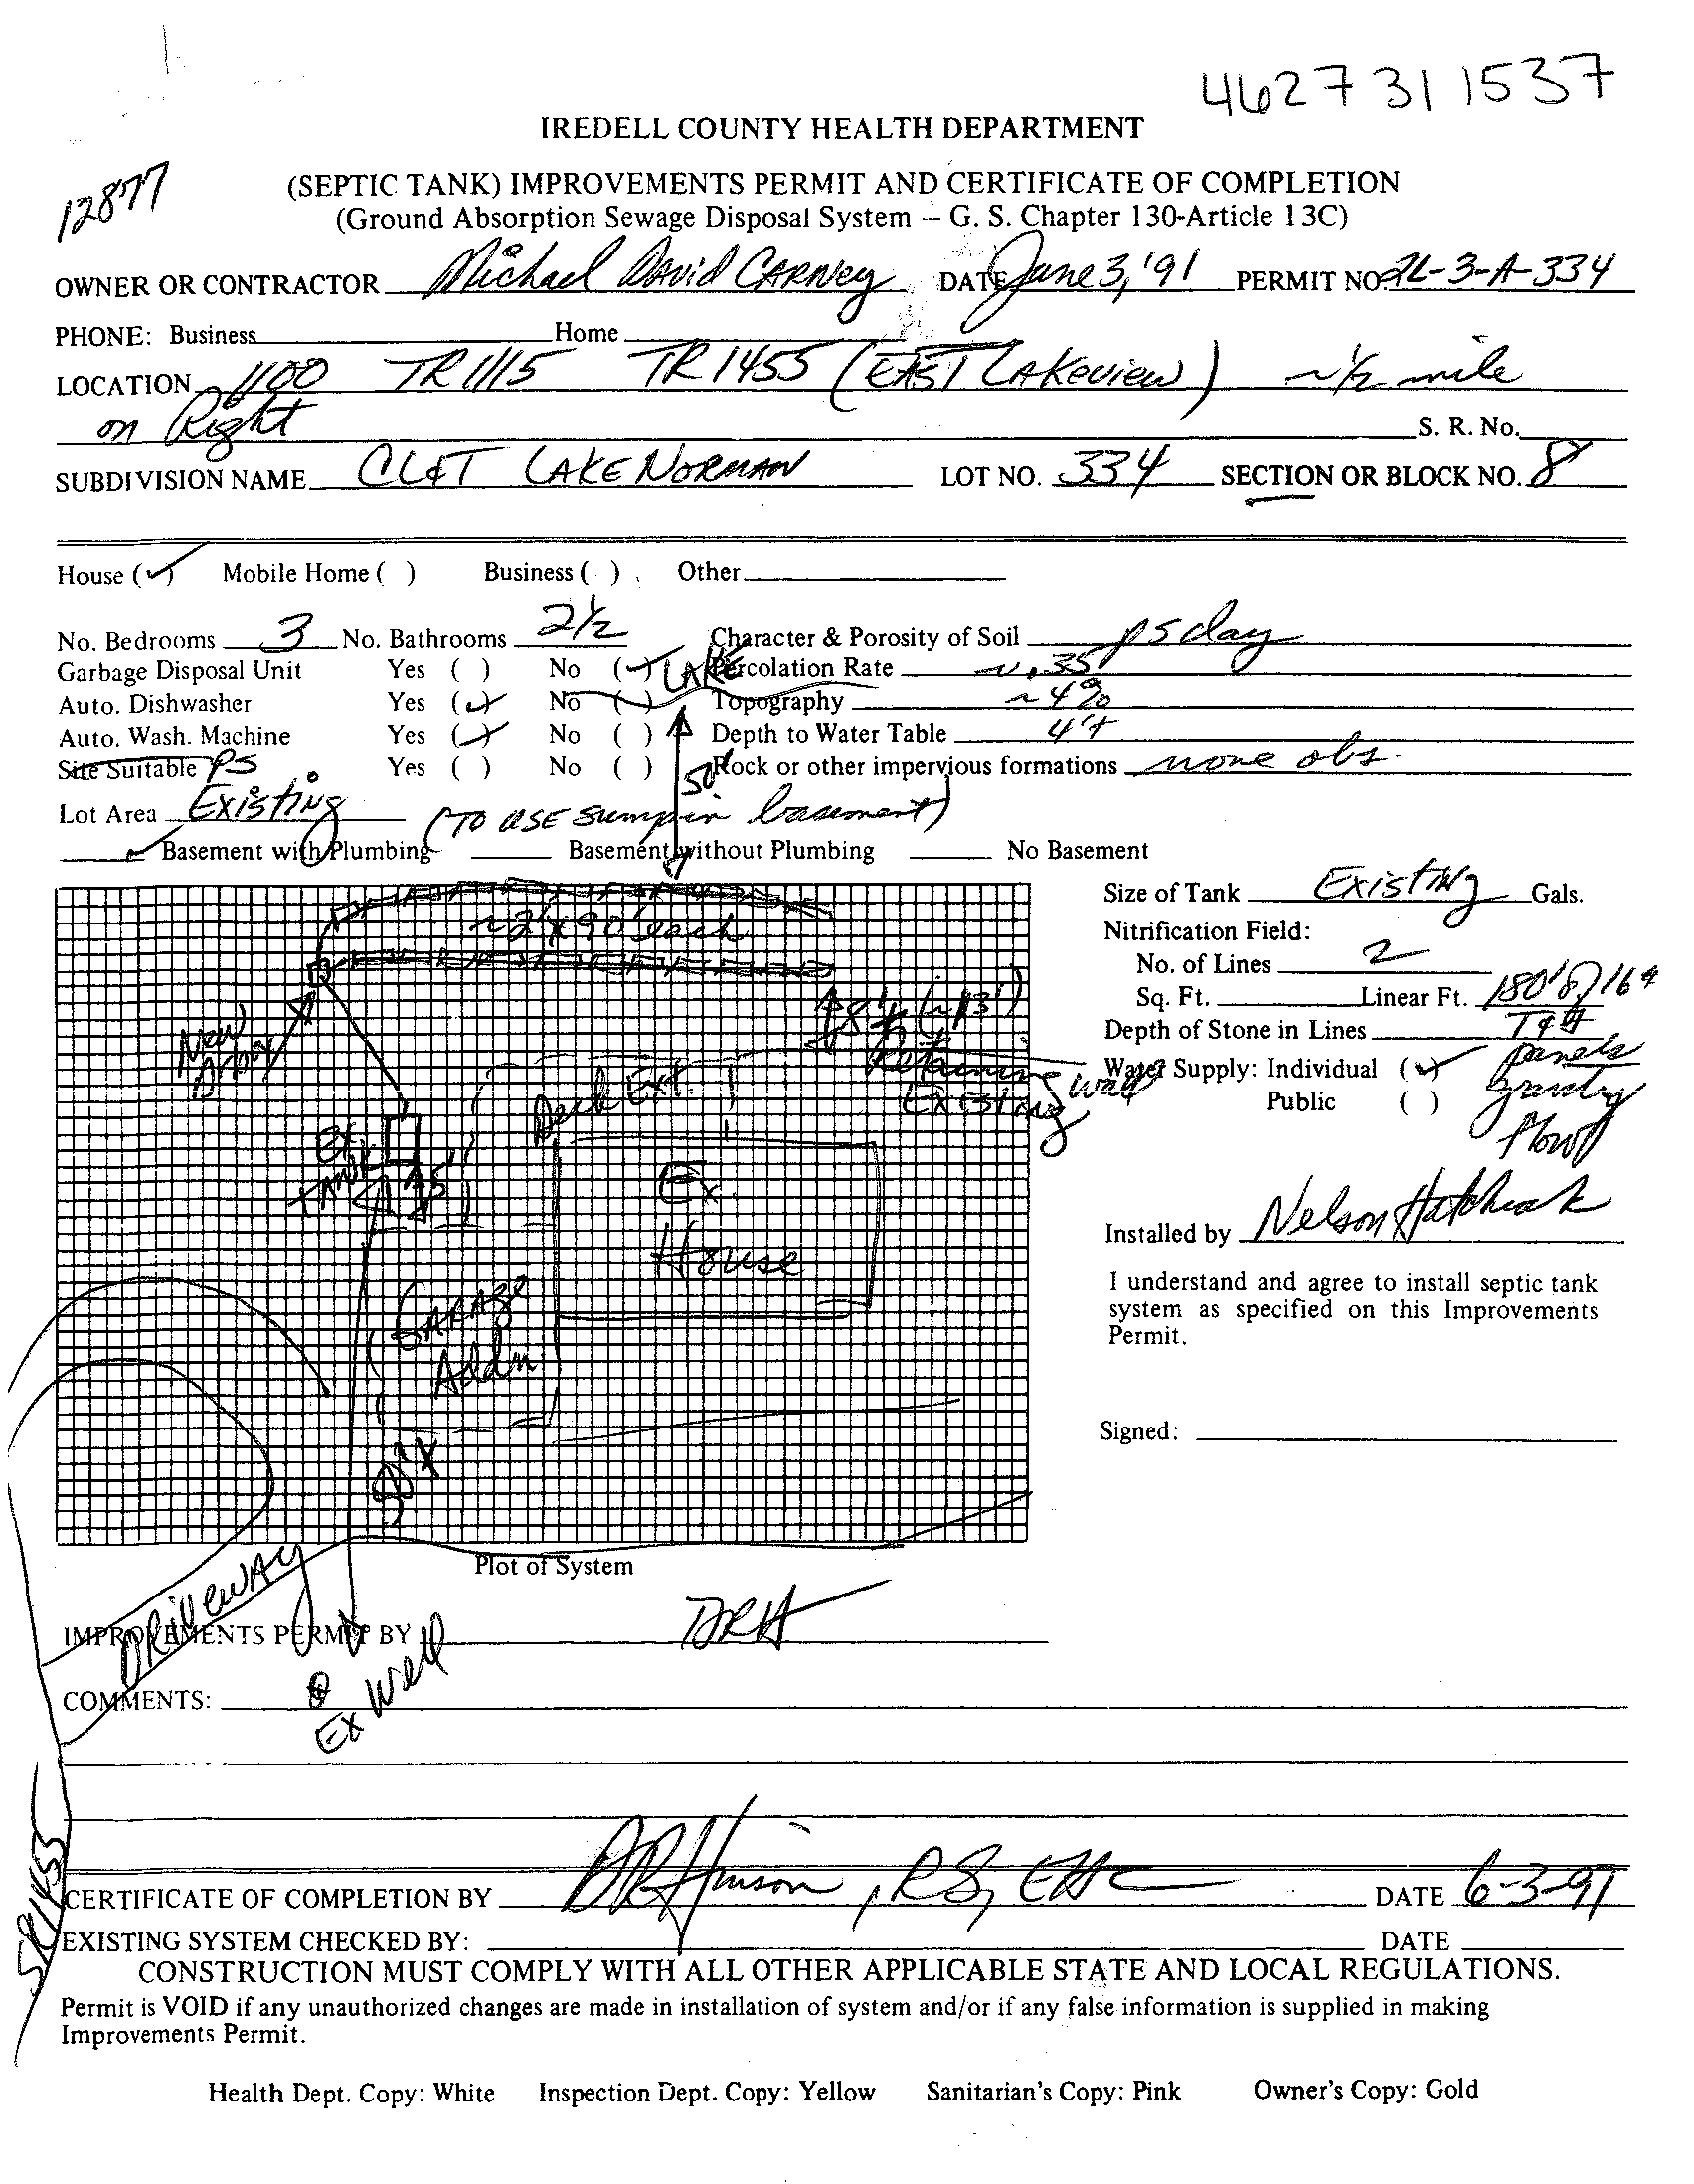 4627 31 1537
IREDELL COUNTY HEALTH DEPARTMENT
12877
(SEPTIC TANK) IMPROVEMENTS PERMIT AND CERTIFICATE OF COMPLETION
(Ground Absorption Sewage Disposal System – G. S. Chapter 130-Article 13C)
OWNER OR CONTRACTOR Michael David CARNey DATE June 3, '91 PERMIT NO. 2L-3-A-334
PHONE: Business Home
LOCATION 1100 TR 1115 TR 1455 (EAST LAKeview) ~ 1/2 mile
on Right S. R. No.
SUBDIVISION NAME CL&T LAKE NORMAN LOT NO. 334 SECTION OR BLOCK NO. 8
House (✓) Mobile Home ( ) Business ( ) Other
No. Bedrooms 3 No. Bathrooms 2 1/2 Character & Porosity of Soil ps clay
Garbage Disposal Unit Yes ( ) No (✓) LAKE Percolation Rate ~ .35
Auto. Dishwasher Yes (✓) No ( ) Topography ~ 4%
Auto. Wash. Machine Yes (✓) No ( ) Depth to Water Table 4'+
Site Suitable PS Yes ( ) No ( ) 50' Rock or other impervious formations none obs.
Lot Area Existing (TO USE Sump in basement)
✓ Basement with Plumbing Basement without Plumbing No Basement
Size of Tank Existing Gals.
Nitrification Field:
No. of Lines 2
Sq. Ft. Linear Ft. 180' of 16"
Depth of Stone in Lines
panels
Water Supply: Individual (✓)
Public ( )
gravity
flow
~2'x90' each
New
Retaining wall
Existing
Deck Ext.
Ex
TANK
5'
Ex.
House
GARAGE
Addn
Installed by Nelson
I understand and agree to install septic tank
system as specified on this Improvements
Permit.
Signed:
Plot of System
DRiveWAY
IMPROVEMENTS PERMIT BY DRH
COMMENTS:
Ex Well
SR 1455
CERTIFICATE OF COMPLETION BY DRHinson, RS, DATE 6-3-91
EXISTING SYSTEM CHECKED BY: DATE
CONSTRUCTION MUST COMPLY WITH ALL OTHER APPLICABLE STATE AND LOCAL REGULATIONS.
Permit is VOID if any unauthorized changes are made in installation of system and/or if any false information is supplied in making
Improvements Permit.
Health Dept. Copy: White Inspection Dept. Copy: Yellow Sanitarian's Copy: Pink Owner's Copy: Gold